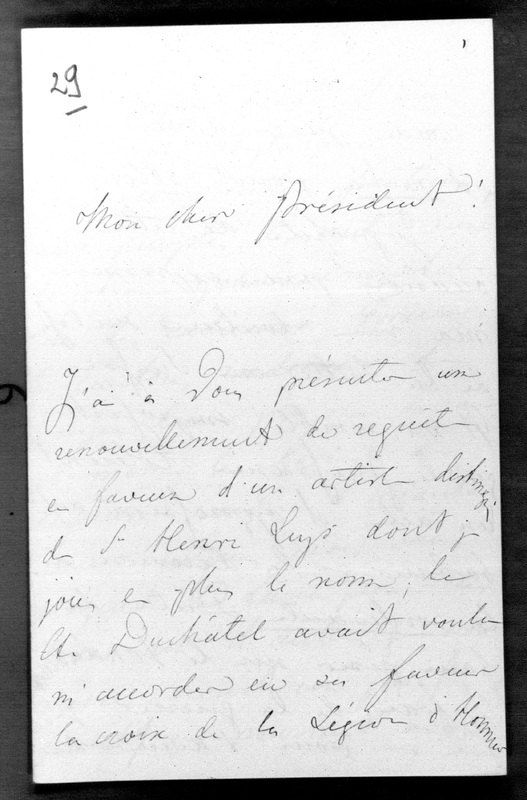 29
Mon cher Président!
J'ai à Vous présenter un
renouvellement de requête
en faveur d'un artiste distingué
de Sr Henri Luys dont je
joins en plus le nom; le
Cte Duchâtel avait voulu
m'accorder en sa faveur
la croix de la Légion d'Honneur